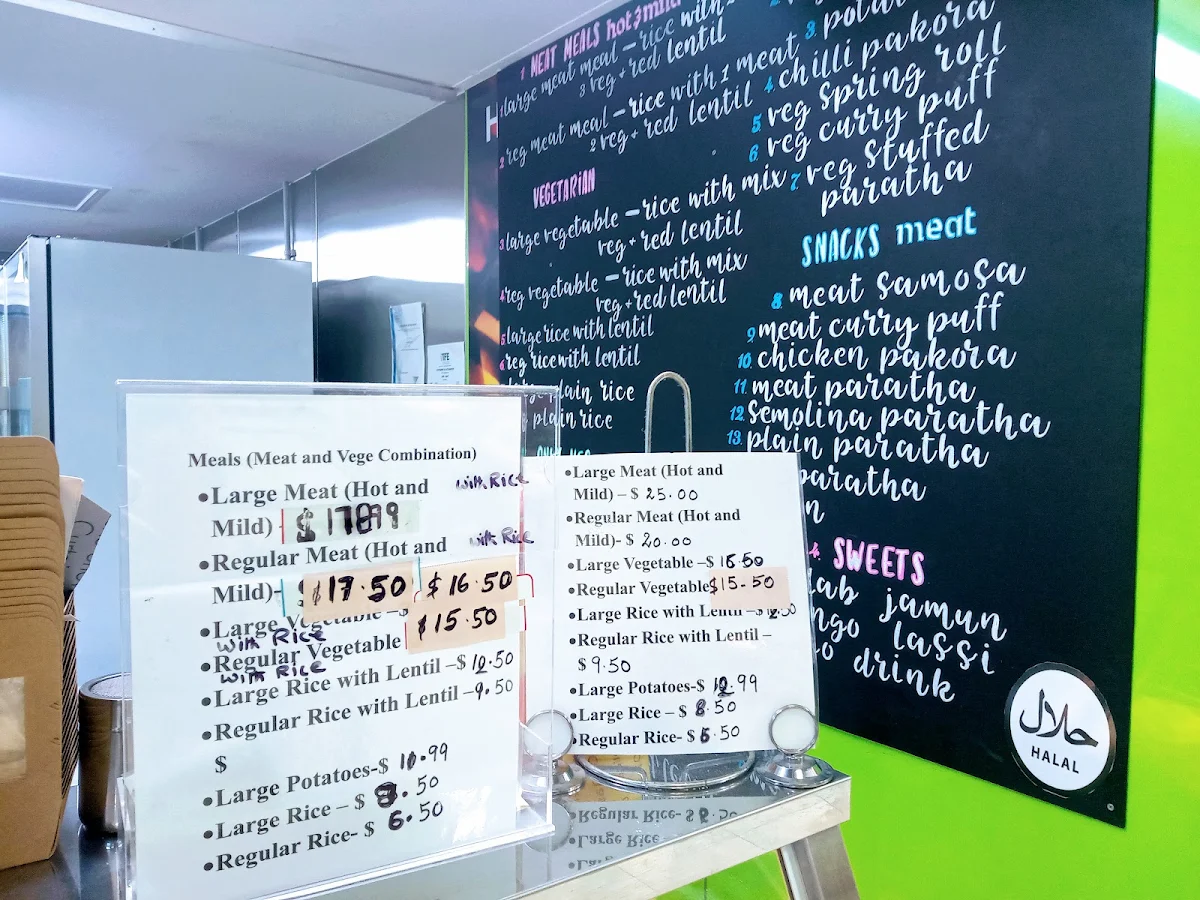 1 MEAT MEALS hot & mild
1 large meat meal – rice with
3 veg + red lentil
2 reg meat meal – rice with 1 meat
2 veg + red lentil
VEGETARIAN
3 large vegetable – rice with mix
veg + red lentil
4 reg vegetable – rice with mix
veg + red lentil
5 large rice with lentil
6 reg rice with lentil
plain rice
plain rice
3.
4 chilli pakora
5. veg spring roll
6. veg curry puff
7 veg stuffed
paratha
SNACKS meat
8. meat samosa
9. meat curry puff
10. chicken pakora
11. meat paratha
12. semolina paratha
13. plain paratha
paratha
SWEETS
jamun
lassi
drink
حلال
HALAL
Meals (Meat and Vege Combination)
•Large Meat (Hot and with Rice
Mild)
•Regular Meat (Hot and with Rice
Mild)- $17.50 $16.50
•Large Vegetable –$
with Rice $15.50
•Regular Vegetable
with Rice
•Large Rice with Lentil –$ 10.50
•Regular Rice with Lentil –9.50
$
•Large Potatoes-$ 10.99
•Large Rice – $ 8.50
•Regular Rice- $ 6.50
•Large Meat (Hot and
Mild) – $ 25.00
•Regular Meat (Hot and
Mild)- $ 20.00
•Large Vegetable –$ 16.50
•Regular Vegetable $15-50
•Large Rice with Lentil –$
•Regular Rice with Lentil –
$ 9.50
•Large Potatoes-$ 10.99
•Large Rice – $ 8.50
•Regular Rice- $ 6.50